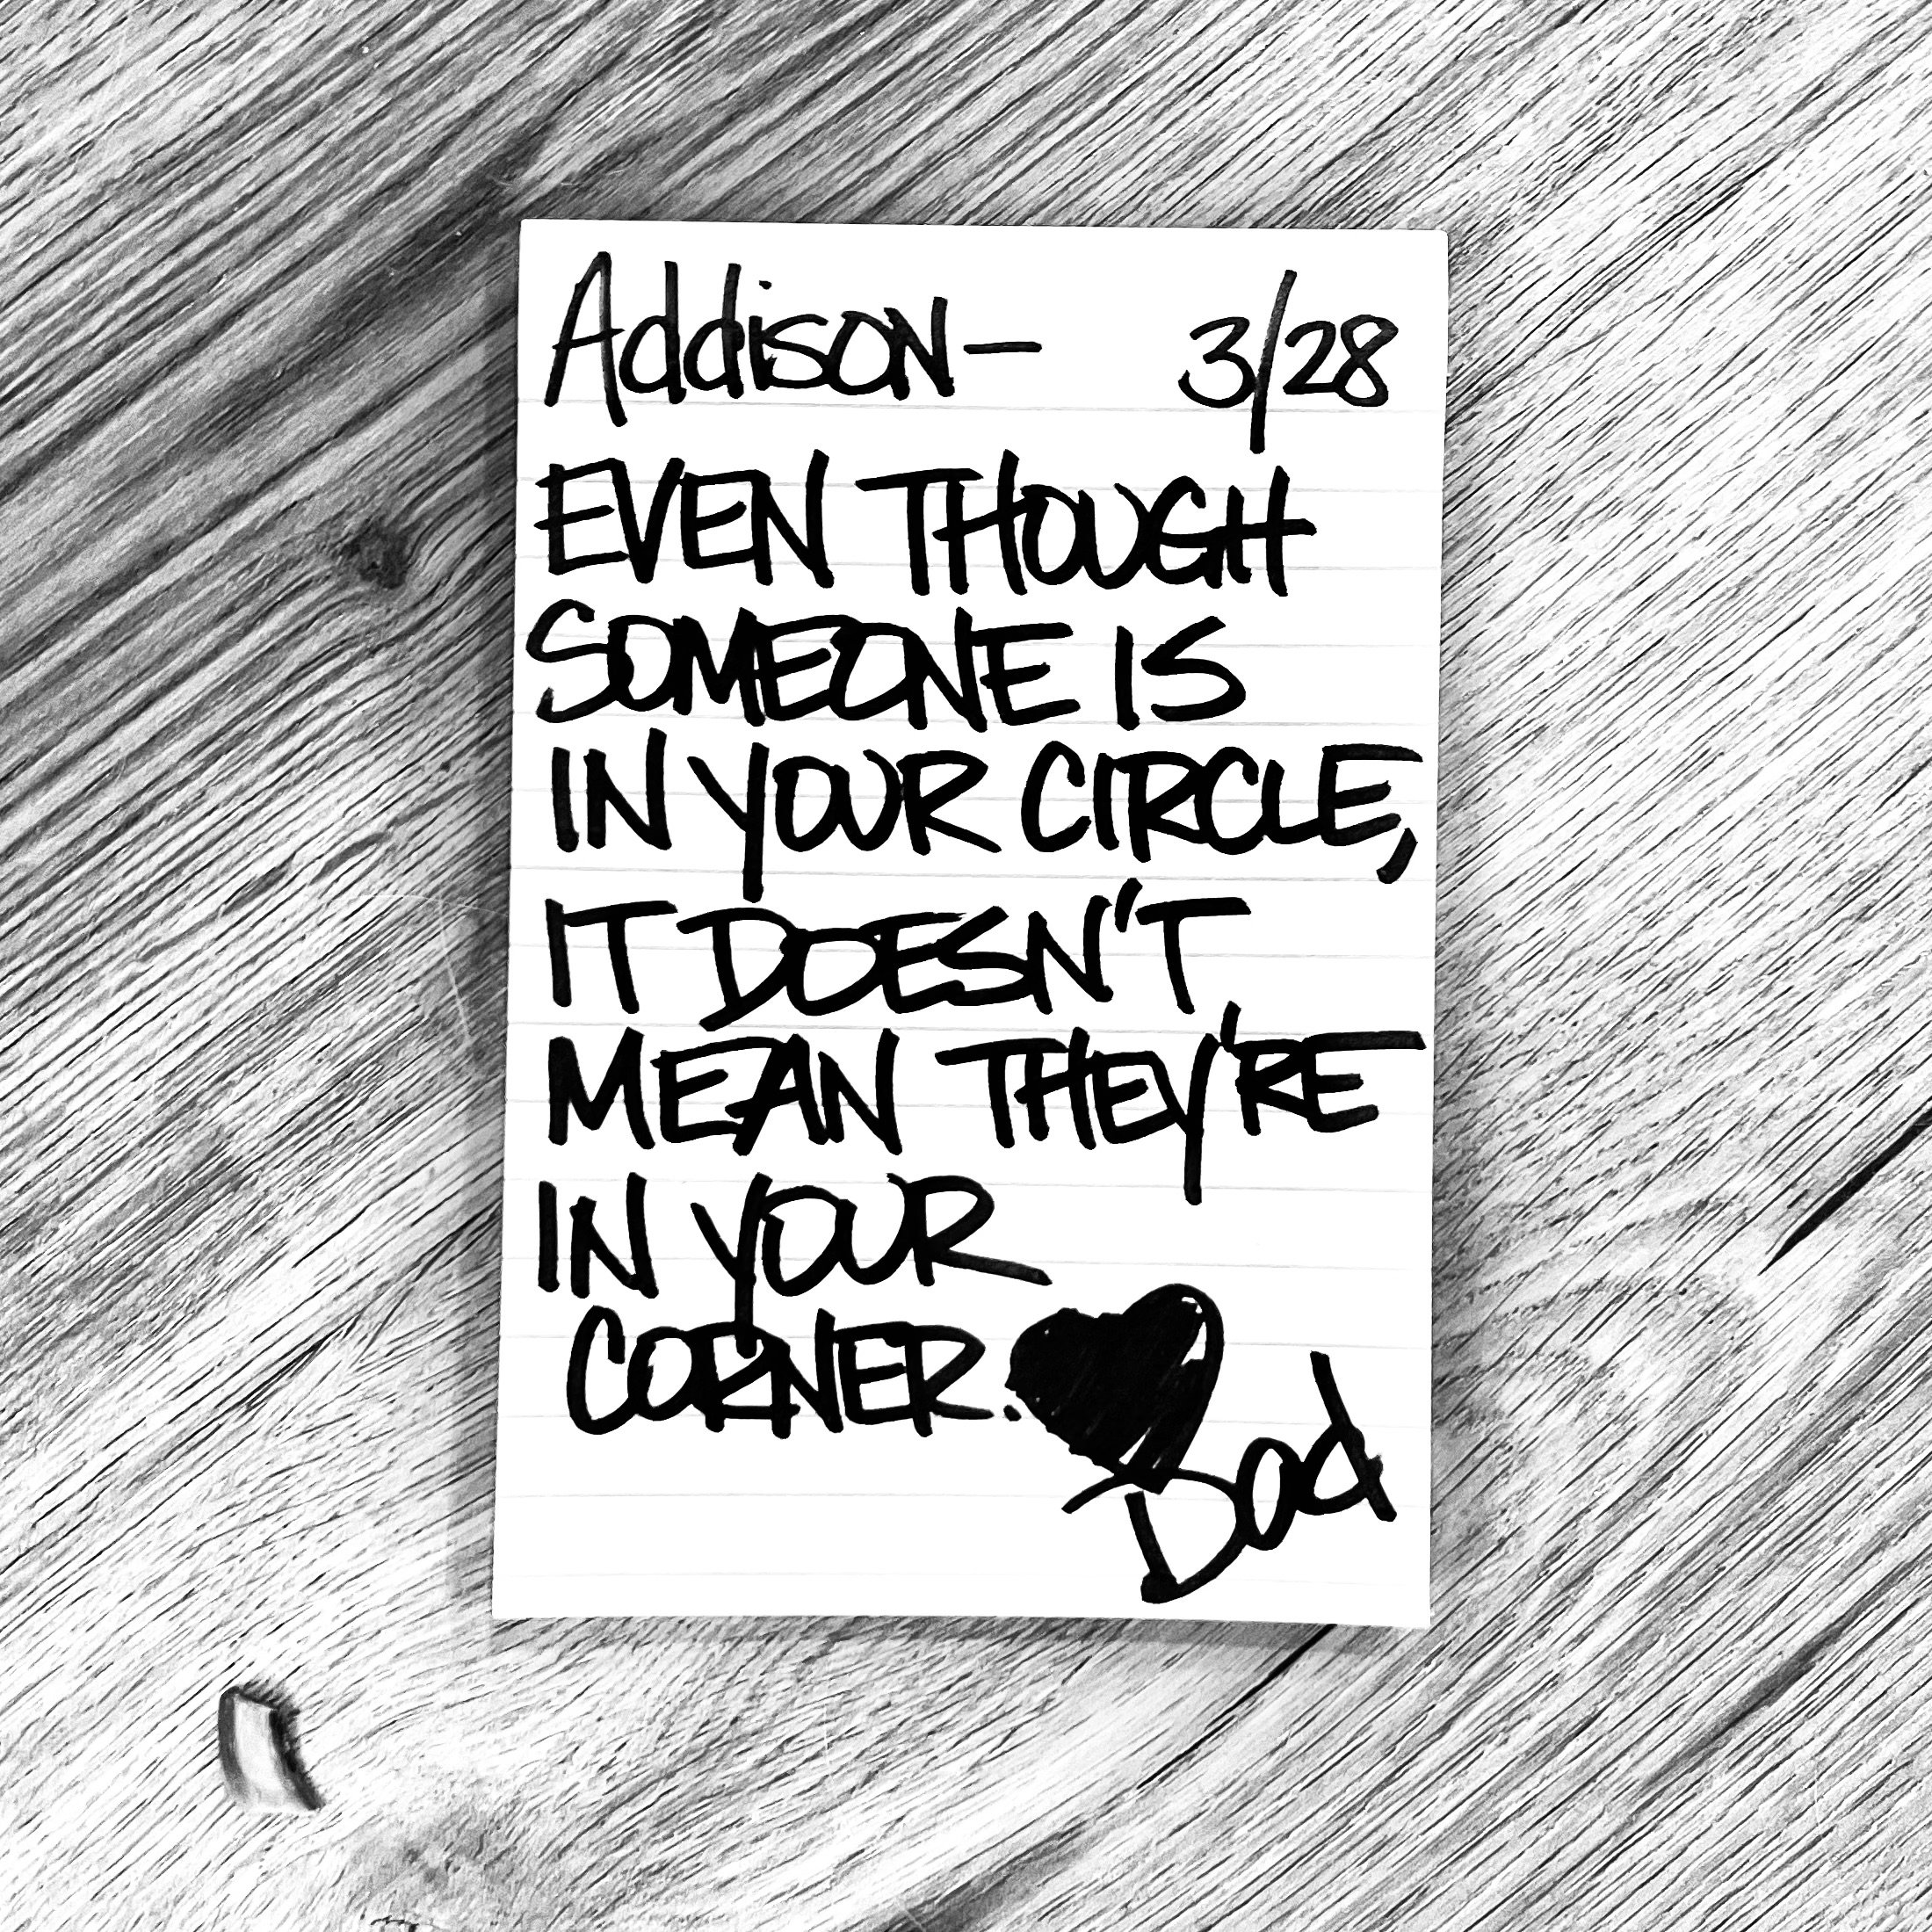 Addison— 3/28
EVEN THOUGH
SOMEONE IS
IN YOUR CIRCLE,
IT DOESN'T
MEAN THEY'RE
IN YOUR
CORNER.
Dad